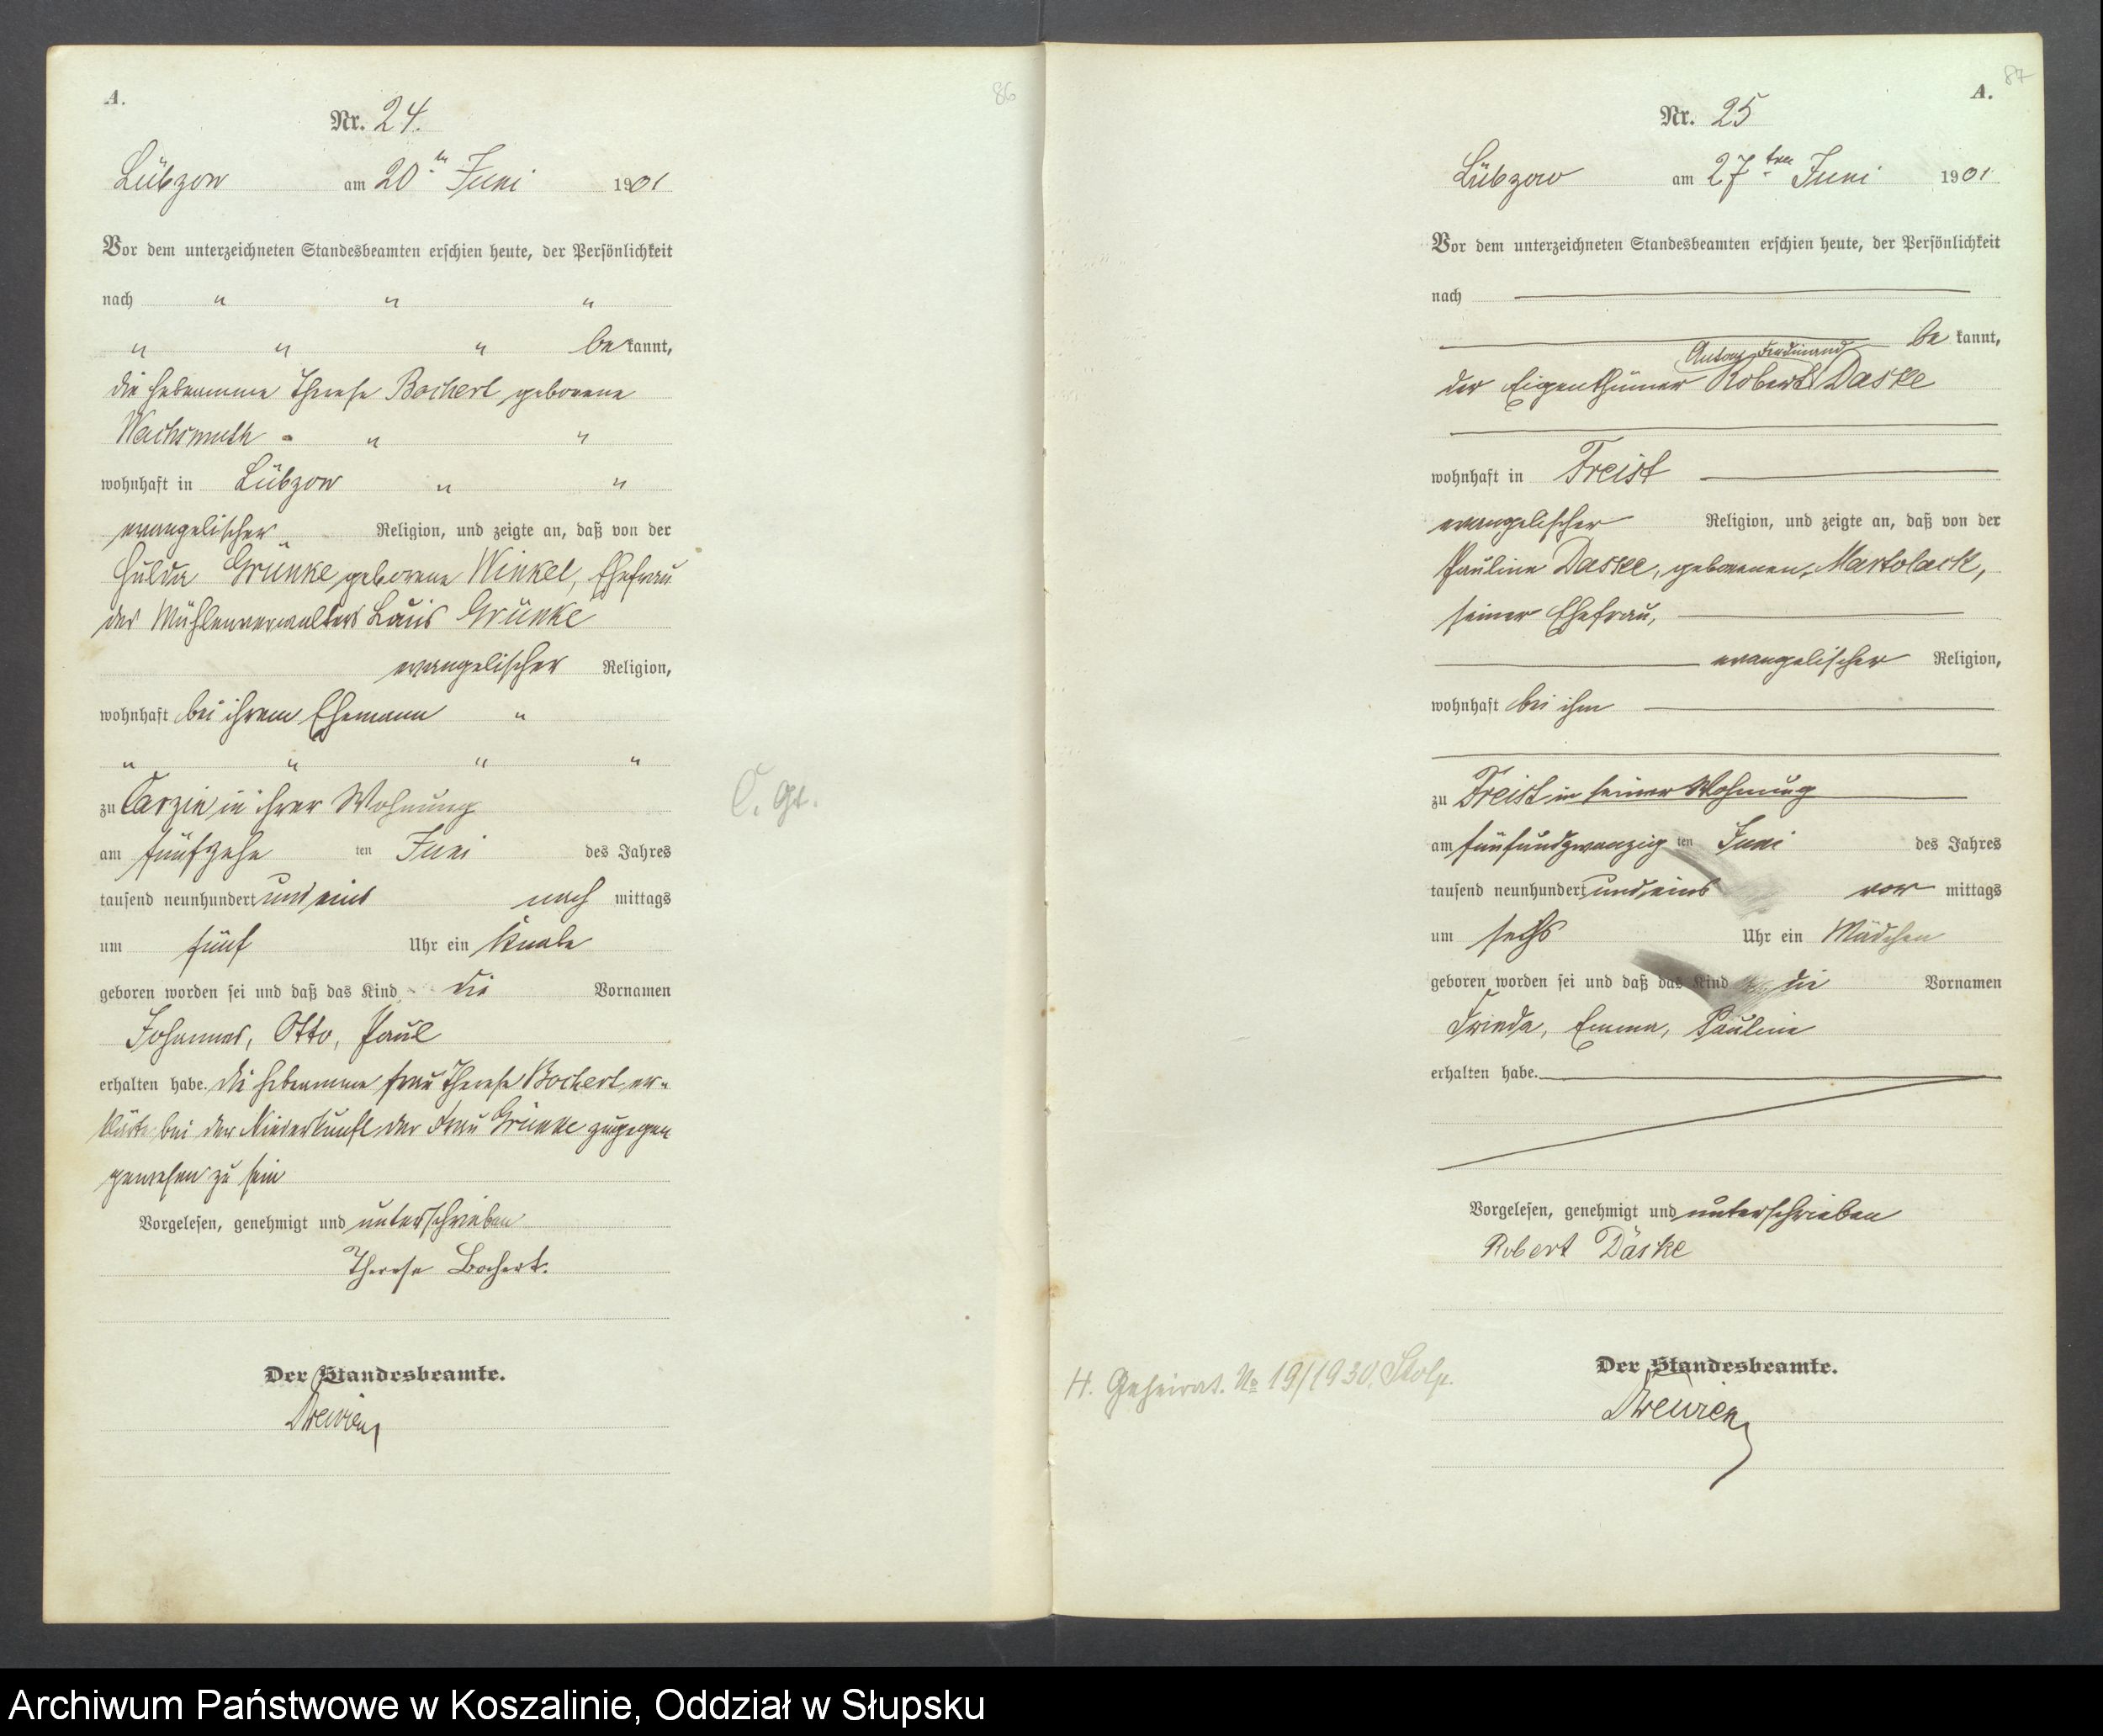 86
A.
Nr. 24.
Lübzow am 20ten Juni 1901
Vor dem unterzeichneten Standesbeamten erschien heute, der Persönlichkeit
nach " " "
" " " be kannt,
die Hebamme Therese Bochert geborene
Wachsmuth " "
wohnhaft in Lübzow " "
evangelischer Religion, und zeigte an, daß von der
Hulda Grünke geborene Winkel, Ehefrau
des Mühlenverwalters Louis Grünke
evangelischer Religion,
wohnhaft bei ihrem Ehemann "
" " " "
zu Carzin in ihrer Wohnung
am fünfzehn ten Juni des Jahres
tausend neunhundert und eins nach mittags
um fünf Uhr ein Knabe
geboren worden sei und daß das Kind die Vornamen
Johannes, Otto, Paul
erhalten habe. Die Hebamme Frau Therese Bochert er-
klärte bei der Niederkunft der Frau Grünke zugegen
gewesen zu sein
Vorgelesen, genehmigt und unterschrieben
Therese Bochert.
Der Standesbeamte.
Drewien
C. Gt.
87
A.
Nr. 25
Lübzow am 27ten Juni 1901
Vor dem unterzeichneten Standesbeamten erschien heute, der Persönlichkeit
nach
be kannt,
Ferdinand
der Eigenthümer Robert Daske
wohnhaft in Freist
evangelischer Religion, und zeigte an, daß von der
Pauline Daske, geborenen Martolack,
seiner Ehefrau,
evangelischer Religion,
wohnhaft bei ihm
zu Freist in seiner Wohnung
am fünfundzwanzig ten Juni des Jahres
tausend neunhundert und eins vor mittags
um sechs Uhr ein Mädchen
geboren worden sei und daß das Kind die Vornamen
Frieda, Emma, Pauline
erhalten habe.
Vorgelesen, genehmigt und unterschrieben
Robert Däske
Der Standesbeamte.
Drewien
H. Geheirat. No 19/1930. Stolp.
Archiwum Państwowe w Koszalinie, Oddział w Słupsku